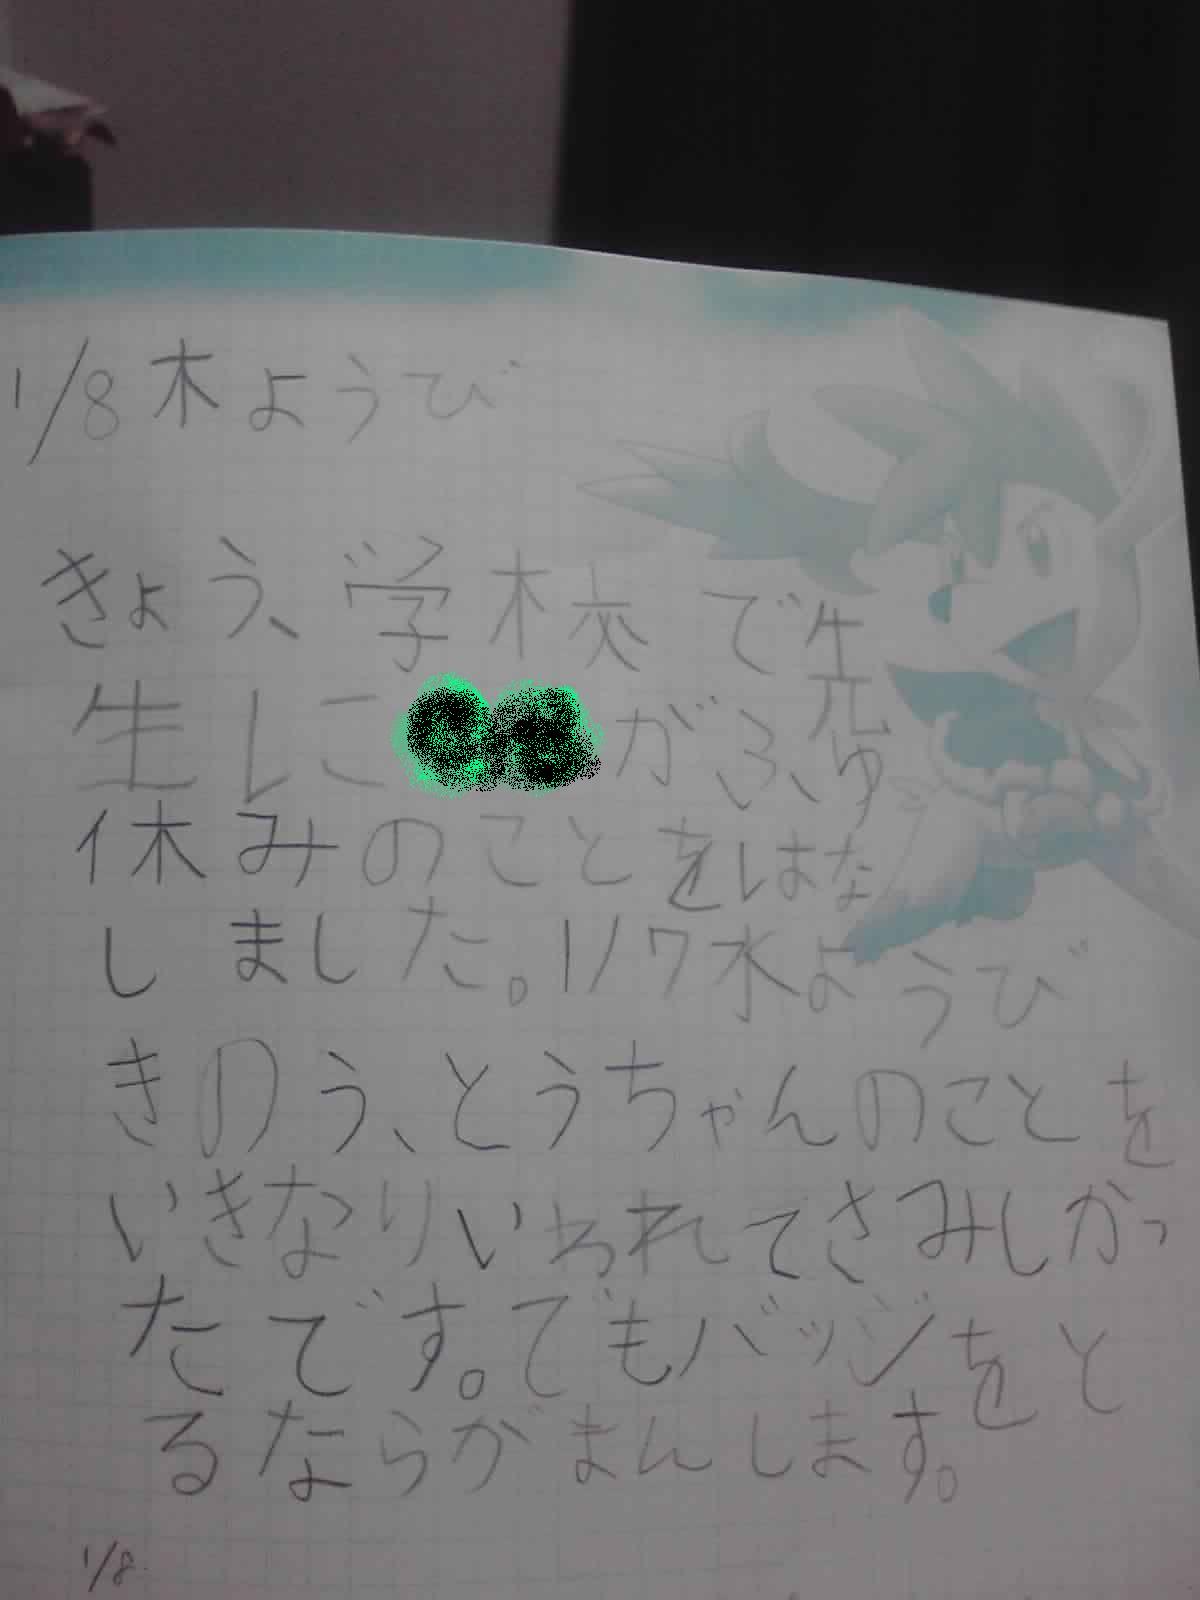 1/8 木ようび
きょう、学校で先
生に がふゆ
休みのことをはな
しました。1/7水ようび
きのう、とうちゃんのことを
いきなりいわれてさみしかっ
たです。でもバッジをと
るならがまんします。
1/8